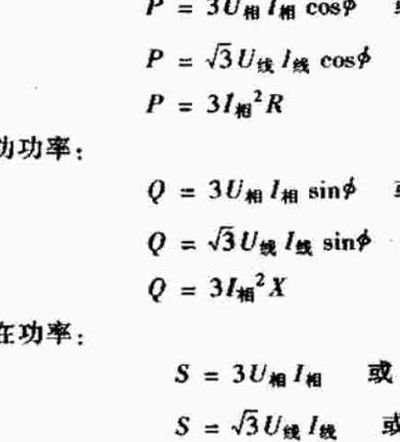 P = 3U相 I相 cosφ
P = √3U线 I线 cosφ
P = 3I相²R
功功率：
Q = 3U相 I相 sinφ
Q = √3U线 I线 sinφ
Q = 3I相²X
在功率：
S = 3U相 I相 或
S = √3U线 I线